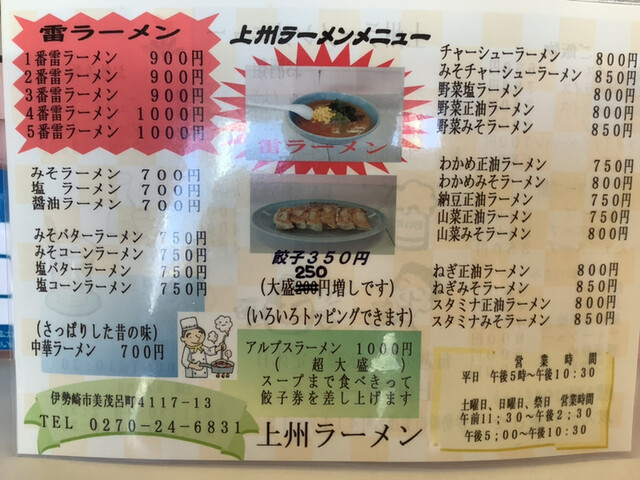 雷ラーメン
1番雷ラーメン 900円
2番雷ラーメン 900円
3番雷ラーメン 900円
4番雷ラーメン 1000円
5番雷ラーメン 1000円
みそラーメン 700円
塩 ラーメン 700円
醤油ラーメン 700円
みそバターラーメン 750円
みそコーンラーメン 750円
塩バターラーメン 750円
塩コーンラーメン 750円
(さっぱりした昔の味)
中華ラーメン 700円
伊勢崎市美茂呂町4117-13
TEL 0270-24-6831
上州ラーメンメニュー
雷ラーメン
餃子350円
250
(大盛200円増しです)
(いろいろトッピングできます)
アルプスラーメン 1000円
( 超大盛 )
スープまで食べきって
餃子券を差し上げます
上州ラーメン
チャーシューラーメン 800円
みそチャーシューラーメン 850円
野菜塩ラーメン 800円
野菜正油ラーメン 800円
野菜みそラーメン 850円
わかめ正油ラーメン 750円
わかめみそラーメン 800円
納豆正油ラーメン 750円
山菜正油ラーメン 750円
山菜みそラーメン 800円
ねぎ正油ラーメン 800円
ねぎみそラーメン 850円
スタミナ正油ラーメン 800円
スタミナみそラーメン 850円
営業時間
平日 午後5時~午後10:30
土曜日、日曜日、祭日 営業時間
午前11,30~午後2;30
午後5;00~午後10:30